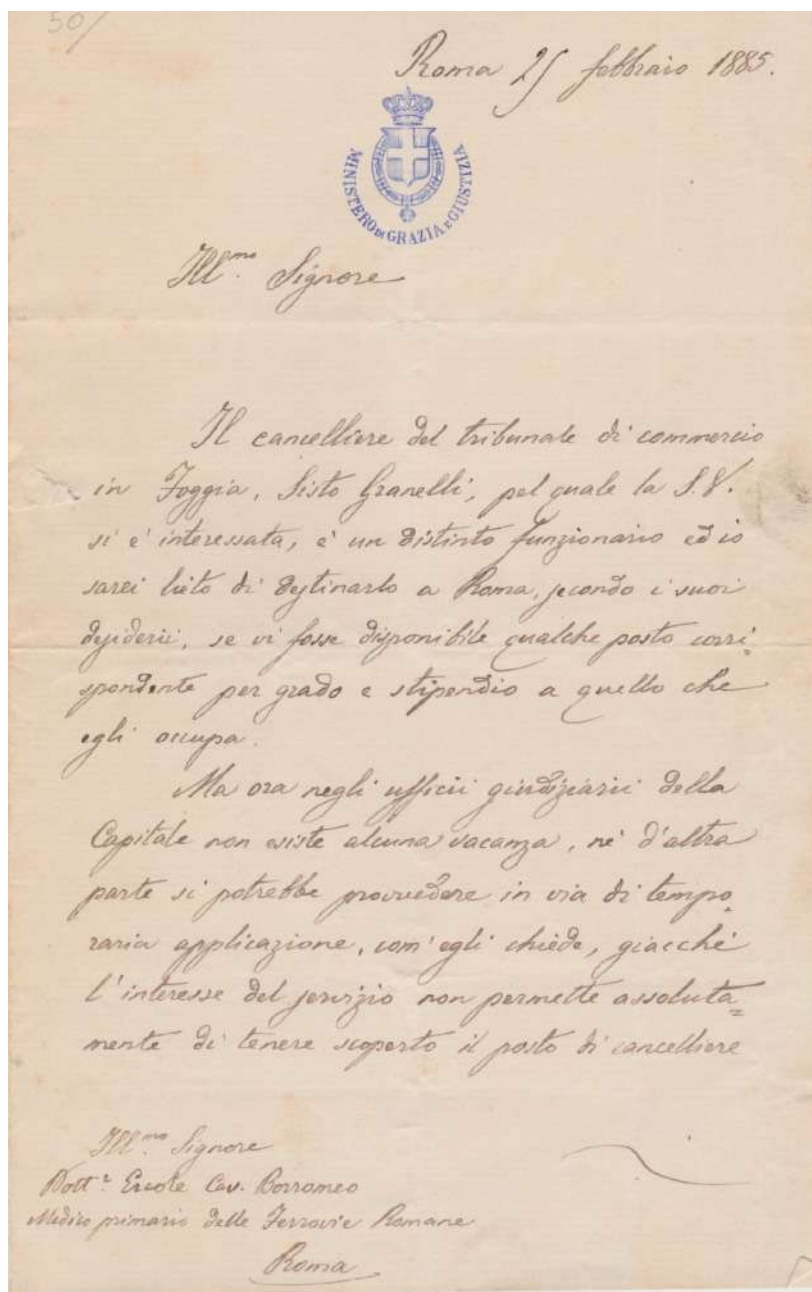 50/
Roma 25 febbraio 1885.
MINISTERO DI GRAZIA E GIUSTIZIA
Ill.mo Signore
Il cancelliere del tribunale di commercio
in Foggia, Sisto Granelli, pel quale la S.V.
si è interessata, è un distinto funzionario ed io
sarei lieto di destinarlo a Roma, secondo i suoi
desiderii, se vi fosse disponibile qualche posto corri=
spondente per grado e stipendio a quello che
egli occupa.
Ma ora negli ufficii giudiziarii della
Capitale non esiste alcuna vacanza, nè d'altra
parte si potrebbe provvedere in via di tempo=
raria applicazione, com'egli chiede, giacchè
l'interesse del servizio non permette assoluta=
mente di tenere scoperto il posto di cancelliere
Ill.mo Signore
Dott.r Ercole Cav. Borromeo
Medico primario delle Ferrovie Romane
Roma